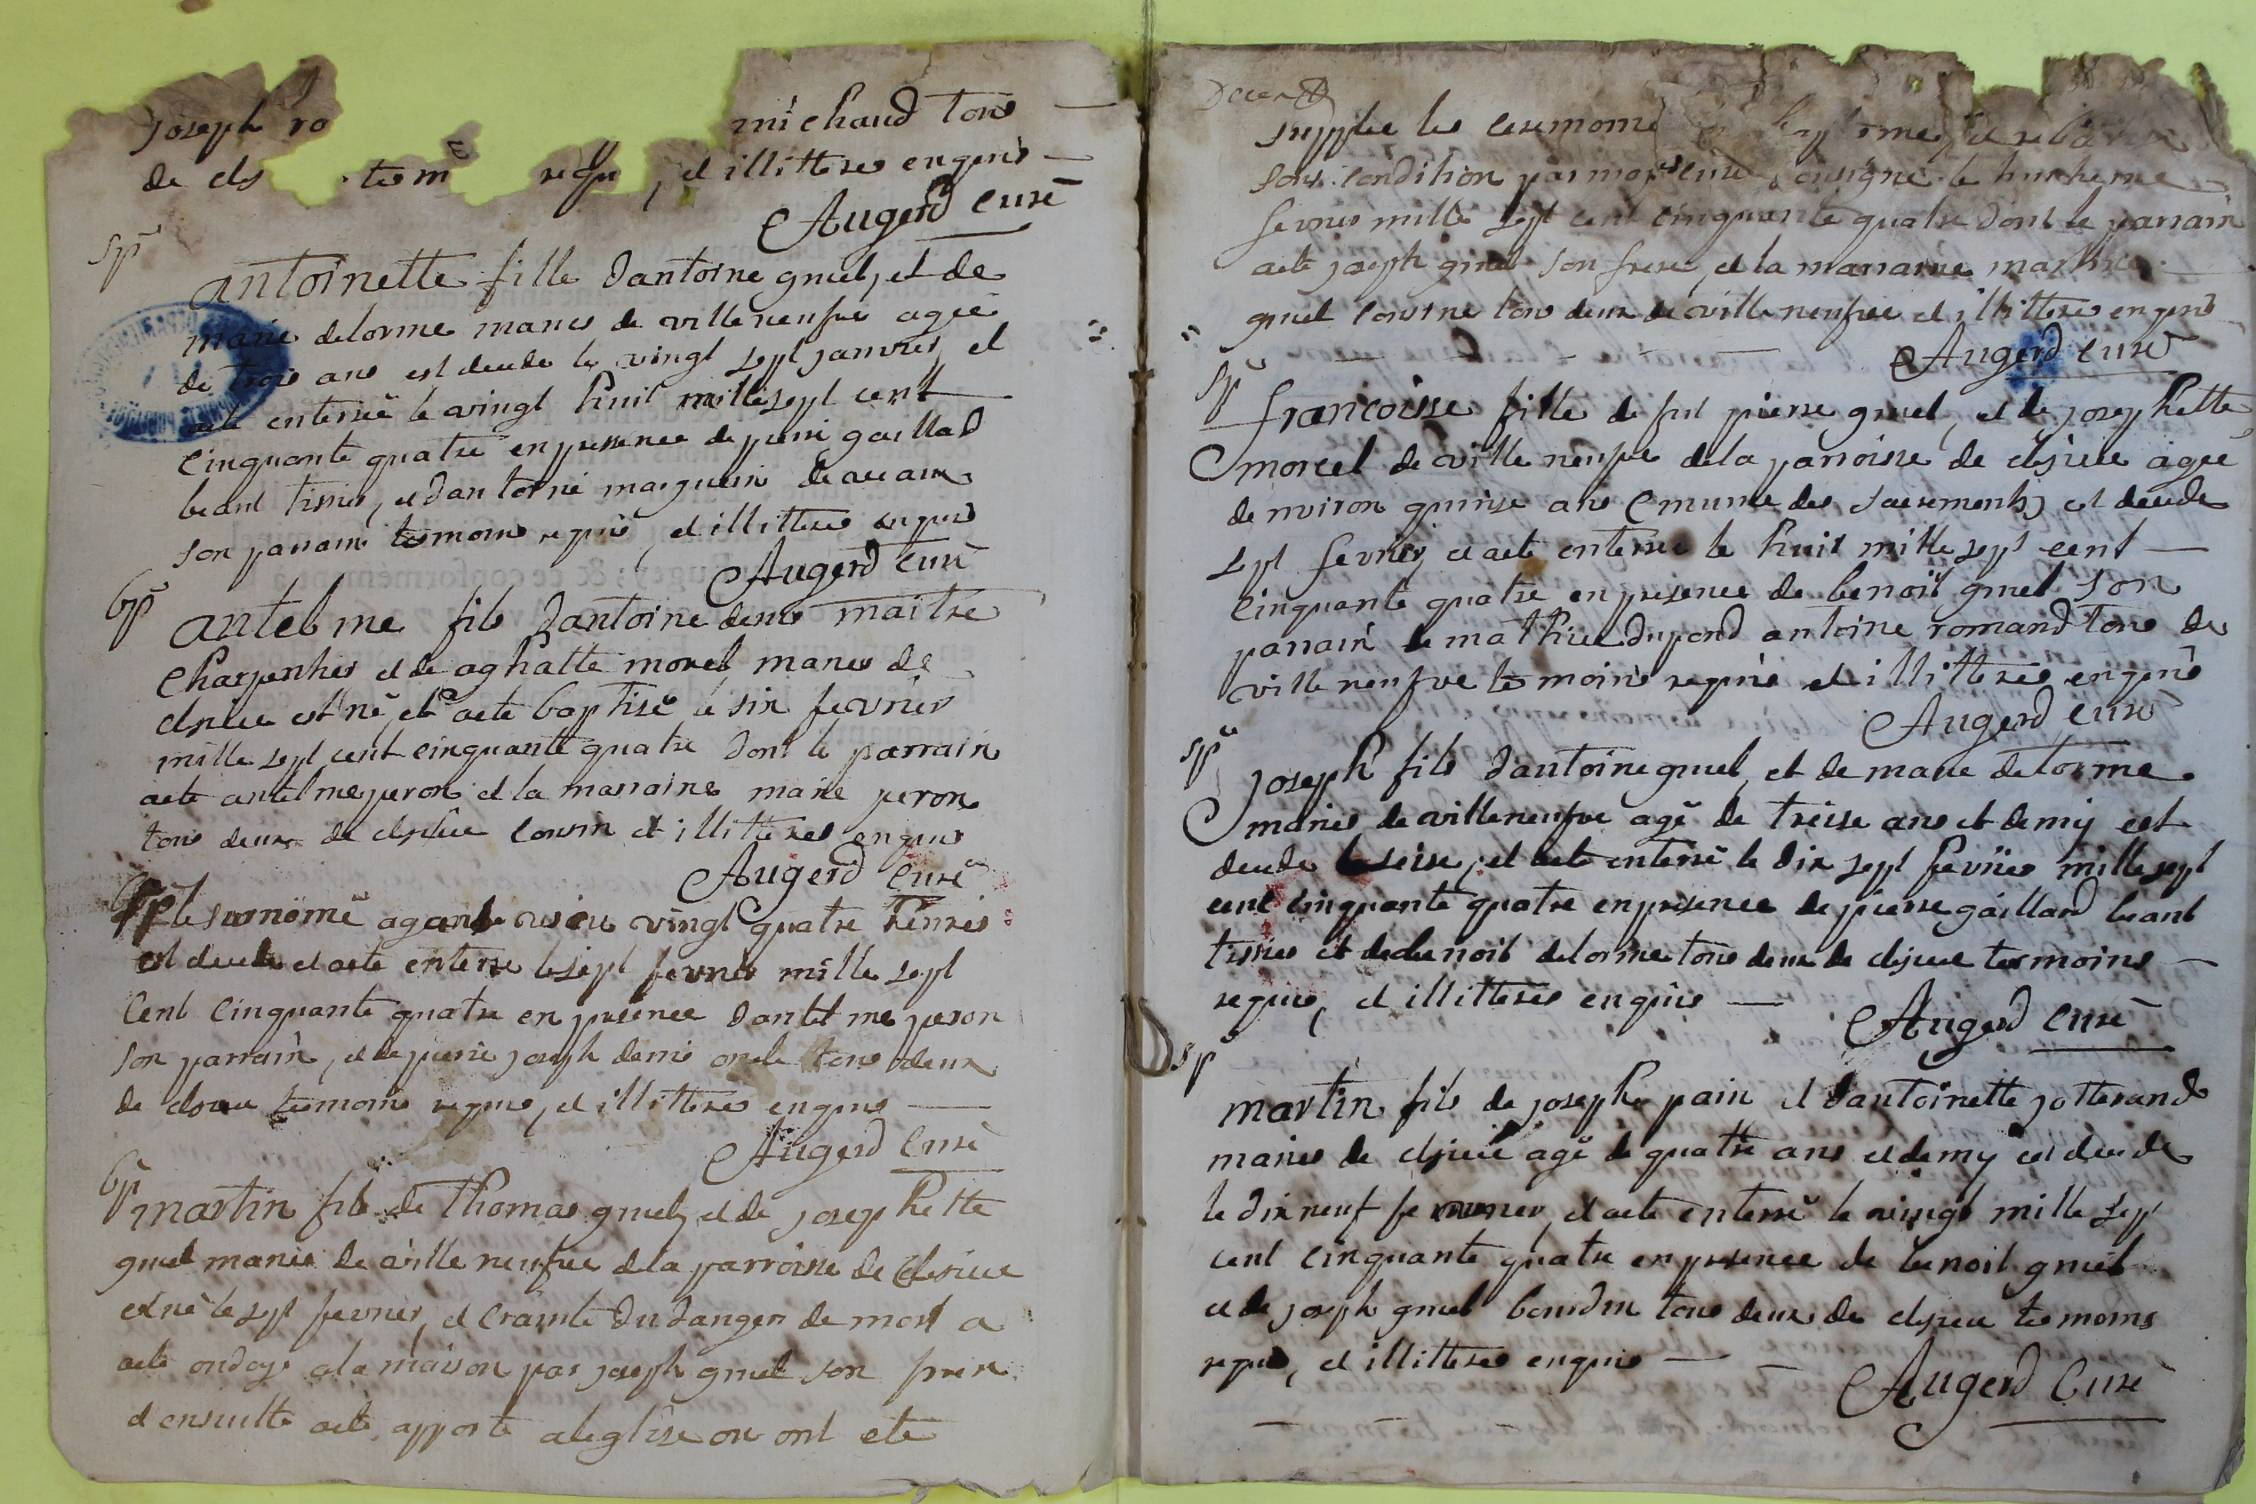 joseph ro michaud tous
de cls tem requ, et illitteres enquis
Augerd curé
sp
antoinette fille dantoine gruel, et de
marie delorme maries de ville neufve agee
de trois ans est decede le vingt sept janvier, et
aete enterreé le vingt huit mille sept cent
cinquante quatre en presence de pierre gaillard
beant tissier, et dantoine marguin
son parrain temoins requis, et illitteres enquis
Augerd curé
bp
antelme fils dantoine demis maitre
charpentier et de aghatte morel maries de
clsieu est né, et aete baptisé le six fevrier
mille sept cent cinquante quatre dont le parrain
aete antelme peron et la marraine marie peron
tous deux de clsieu cousin et illitteres enquis
Augerd curé
sp le surnomé agant vecu vingt quatre heures
est decede et aete enterre le sept fevrier mille sept
cent cinquante quatre en presence dantelme peron
son parrain, et de pierre joseph demis oncle tous deux
de clsieu temoins requis, et illitteres enquis
Augerd curé
bp
martin fils de thomas gruel, et de josephette
gruel maries de ville neufve de la parroisse de clesieu
est né le sept fevrier, et crainte du danger de mort a
aete ondoye ala maison par joseph gruel son frere
et ensuitte aete apporte a leglise ou ont ete
supplee les ceremonie
sous condition par moy curé sousigne le huitieme
fevrier mille sept cent cinquante quatre dont le parrain
aete joseph gruel son frere, et la marraine
gruel cousine tous deux de ville neufve et illitteres enquis
Augerd curé
sp
francoisse fille de fut pierre gruel, et de josephette
morel de ville neufve de la parroisse de clsieu agee
denviron quinse ans emunie des sacrements est decede
sept fevrier, et aete enterree le huit mille sept cent
cinquante quatre en presence de benoit gruel son
parrain de mathieu dupond antoine romand tous de
ville neufve temoins requis et illitteres enquis
Augerd curé
sp
joseph fils dantoine gruel, et de marie delorme
maries de ville neufve agé de treise ans et demij est
decede le seise, et aete enterré le dix sept fevrier mille sept
cent cinquante quatre en presence de pierre gaillard beant
tissier et de benoit delorme tous deux de clsieu temoins
requis, et illitteres enquis
Augerd curé
sp
martin fils de joseph pain et dantoinette jotterand
maries de clsieu agé de quatre ans et demij est decede
le dix neuf fevrier, et aete enterré le vingt mille sept
cent cinquante quatre en presence de benoit gruel
et de joseph gruel bourdin tous deux de clsieu temoins
requis, et illitteres enquis
Augerd curé